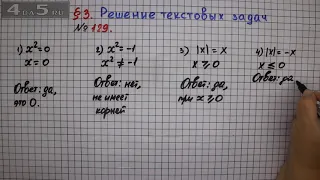 4 5.ru
§3. Решение текстовых задач
№ 129.
1) x²=0
x=0
Ответ: да,
это 0.
2) x²=-1
x²≠-1
Ответ: нет,
не имеет
корней
3) |x|=x
x⩾0
Ответ: да,
при x⩾0
4) |x|=-x
x≤0
Ответ: да